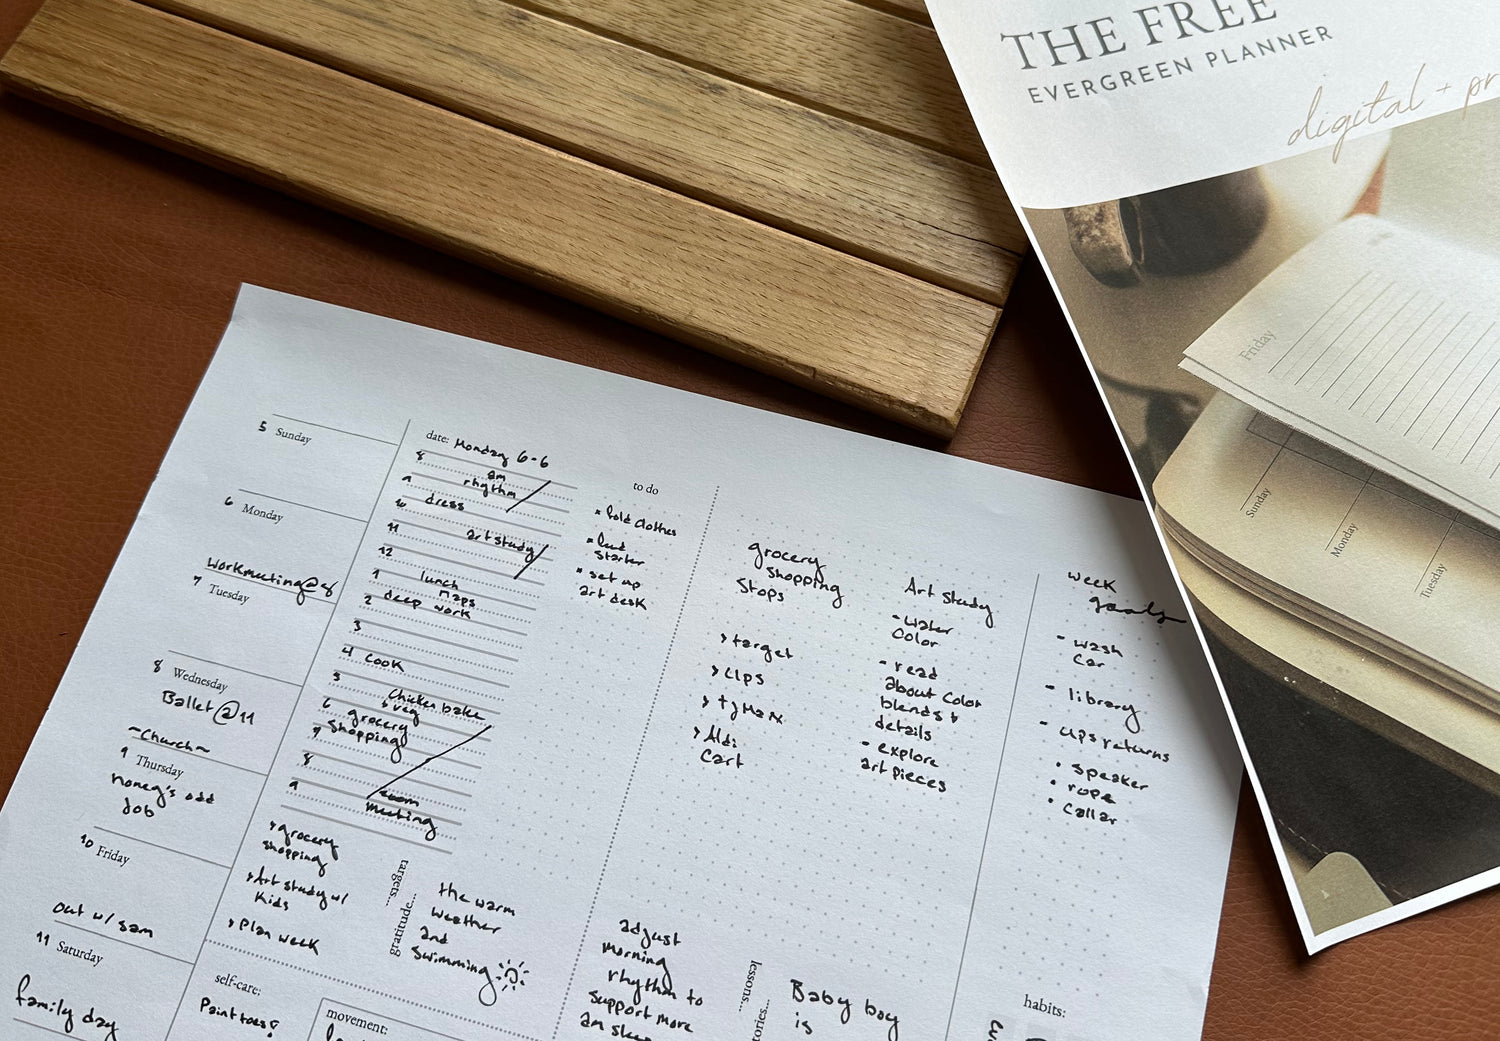 THE FREE
EVERGREEN PLANNER
digital + pr
Friday
Sunday
Monday
Tuesday
5 Sunday
6 Monday
workmeeting@8
7 Tuesday
8 Wednesday
Ballet @ 11
~Church~
9 Thursday
odd
Job
10 Friday
out w/ sam
11 Saturday
family day
date: Monday 6-6
8 am
rhythm
9
dress
10
art study
11
12
1 lunch
naps
2 deep work
3
4 cook
5
Chicken bake
& veg
6 grocery
shopping
7
8
9 zoom
meeting
to do
fold clothes
feed
starter
set up
art desk
> grocery
shopping
> Art study w/
Kids
> Plan week
targets...
gratitude...
the warm
weather
and
swimming
self-care:
Paint toes!
movement:
grocery
shopping
stops
> target
> UPS
> TJ Maxx
> Aldi
Cart
Art Study
- water
color
- read
about color
blends &
details
- explore
art pieces
adjust
morning
rhythm to
support more
am
lessons...
Baby boy
is
week
goals
- wash
car
- library
- ups returns
• speaker
• rope
• collar
habits: